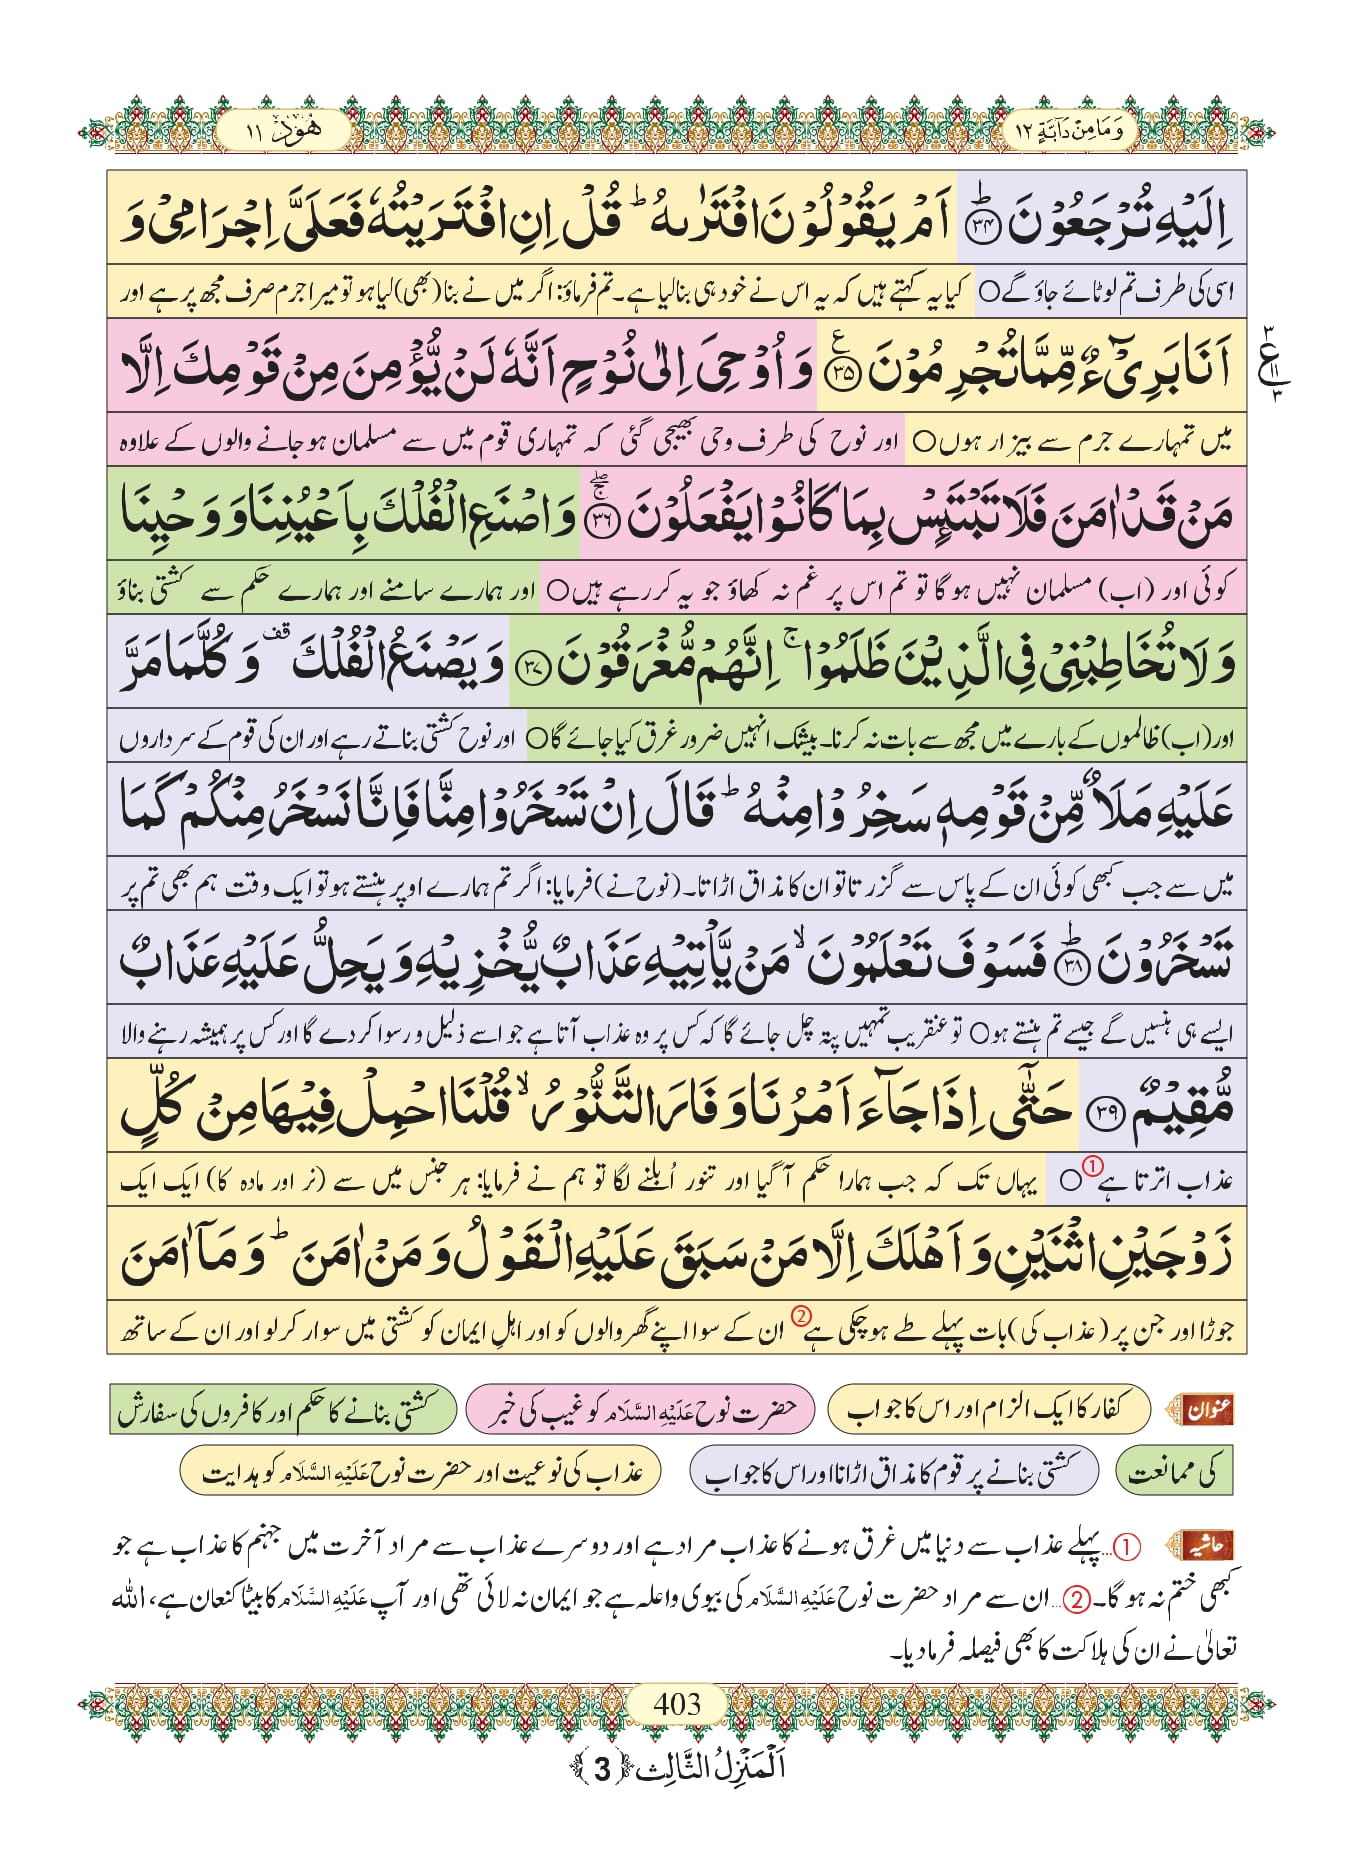 وَمَا مِنْ دَآبَّةٍ ١٢
هُوْد ١١
اِلَيْهِ تُرْجَعُوْنَ ؕ﴿۳۴﴾ اَمْ يَقُوْلُوْنَ افْتَرٰىهُ ؕ قُلْ اِنِ افْتَرَيْتُهٗ فَعَلَيَّ اِجْرَامِيْ وَ
اسی کی طرف تم لوٹائے جاؤ گے○ کیا یہ کہتے ہیں کہ یہ اس نے خود ہی بنالیا ہے۔ تم فرماؤ: اگر میں نے بنا (بھی) لیا ہو تو میرا جرم صرف مجھ پر ہے اور
اَنَا بَرِيْٓءٌ مِّمَّا تُجْرِمُوْنَ ﴿۳۵﴾ع وَ اُوْحِيَ اِلٰى نُوْحٍ اَنَّهٗ لَنْ يُّؤْمِنَ مِنْ قَوْمِكَ اِلَّا
٣
ع
١١
٣
میں تمہارے جرم سے بیزار ہوں○ اور نوح کی طرف وحی بھیجی گئی کہ تمہاری قوم میں سے مسلمان ہوجانے والوں کے علاوہ
مَنْ قَدْ اٰمَنَ فَلَا تَبْتَىِٕسْ بِمَا كَانُوْا يَفْعَلُوْنَ ۚۖ﴿۳۶﴾ وَ اصْنَعِ الْفُلْكَ بِاَعْيُنِنَا وَ وَحْيِنَا
کوئی اور (اب) مسلمان نہیں ہوگا تو تم اس پر غم نہ کھاؤ جو یہ کررہے ہیں○ اور ہمارے سامنے اور ہمارے حکم سے کشتی بناؤ
وَ لَا تُخَاطِبْنِيْ فِي الَّذِيْنَ ظَلَمُوْا ۚ اِنَّهُمْ مُّغْرَقُوْنَ ﴿۳۷﴾ وَ يَصْنَعُ الْفُلْكَ قف وَ كُلَّمَا مَرَّ
اور (اب) ظالموں کے بارے میں مجھ سے بات نہ کرنا۔ بیشک انہیں ضرور غرق کیا جائے گا○ اور نوح کشتی بناتے رہے اور ان کی قوم کے سرداروں
عَلَيْهِ مَلَاٌ مِّنْ قَوْمِهٖ سَخِرُوْا مِنْهُ ؕ قَالَ اِنْ تَسْخَرُوْا مِنَّا فَاِنَّا نَسْخَرُ مِنْكُمْ كَمَا
میں سے جب کبھی کوئی ان کے پاس سے گزرتا تو ان کا مذاق اڑاتا۔ (نوح نے) فرمایا: اگر تم ہمارے اوپر ہنستے ہو تو ایک وقت ہم بھی تم پر
تَسْخَرُوْنَ ؕ﴿۳۸﴾ فَسَوْفَ تَعْلَمُوْنَ ۙ مَنْ يَّاْتِيْهِ عَذَابٌ يُّخْزِيْهِ وَ يَحِلُّ عَلَيْهِ عَذَابٌ
ایسے ہی ہنسیں گے جیسے تم ہنستے ہو○ تو عنقریب تمہیں پتہ چل جائے گا کہ کس پر وہ عذاب آتا ہے جو اسے ذلیل و رسوا کردے گا اور کس پر ہمیشہ رہنے والا
مُّقِيْمٌ ﴿۳۹﴾ حَتّٰۤى اِذَا جَآءَ اَمْرُنَا وَ فَارَ التَّنُّوْرُ ۙ قُلْنَا احْمِلْ فِيْهَا مِنْ كُلٍّ
عذاب اترتا ہے①○ یہاں تک کہ جب ہمارا حکم آگیا اور تنور اُبلنے لگا تو ہم نے فرمایا: ہر جنس میں سے (نر اور مادہ کا) ایک ایک
زَوْجَيْنِ اثْنَيْنِ وَ اَهْلَكَ اِلَّا مَنْ سَبَقَ عَلَيْهِ الْقَوْلُ وَ مَنْ اٰمَنَ ؕ وَ مَاۤ اٰمَنَ
جوڑا اور جن پر (عذاب کی) بات پہلے طے ہوچکی ہے② ان کے سوا اپنے گھر والوں کو اور اہلِ ایمان کو کشتی میں سوار کرلو اور ان کے ساتھ
عنوان کفار کا ایک الزام اور اس کا جواب حضرت نوح عَلَيْهِ السَّلَام کو غیب کی خبر کشتی بنانے کا حکم اور کافروں کی سفارش
کی ممانعت کشتی بنانے پر قوم کا مذاق اڑانا اور اس کا جواب عذاب کی نوعیت اور حضرت نوح عَلَيْهِ السَّلَام کو ہدایت
حاشیہ ①...پہلے عذاب سے دنیا میں غرق ہونے کا عذاب مراد ہے اور دوسرے عذاب سے مراد آخرت میں جہنم کا عذاب ہے جو
کبھی ختم نہ ہوگا۔ ②...ان سے مراد حضرت نوح عَلَيْهِ السَّلَام کی بیوی واعلہ ہے جو ایمان نہ لائی تھی اور آپ عَلَيْهِ السَّلَام کا بیٹا کنعان ہے، اللہ
تعالیٰ نے ان کی ہلاکت کا بھی فیصلہ فرمادیا۔
403
اَلْمَنْزِلُ الثَّالِث ﴿3﴾